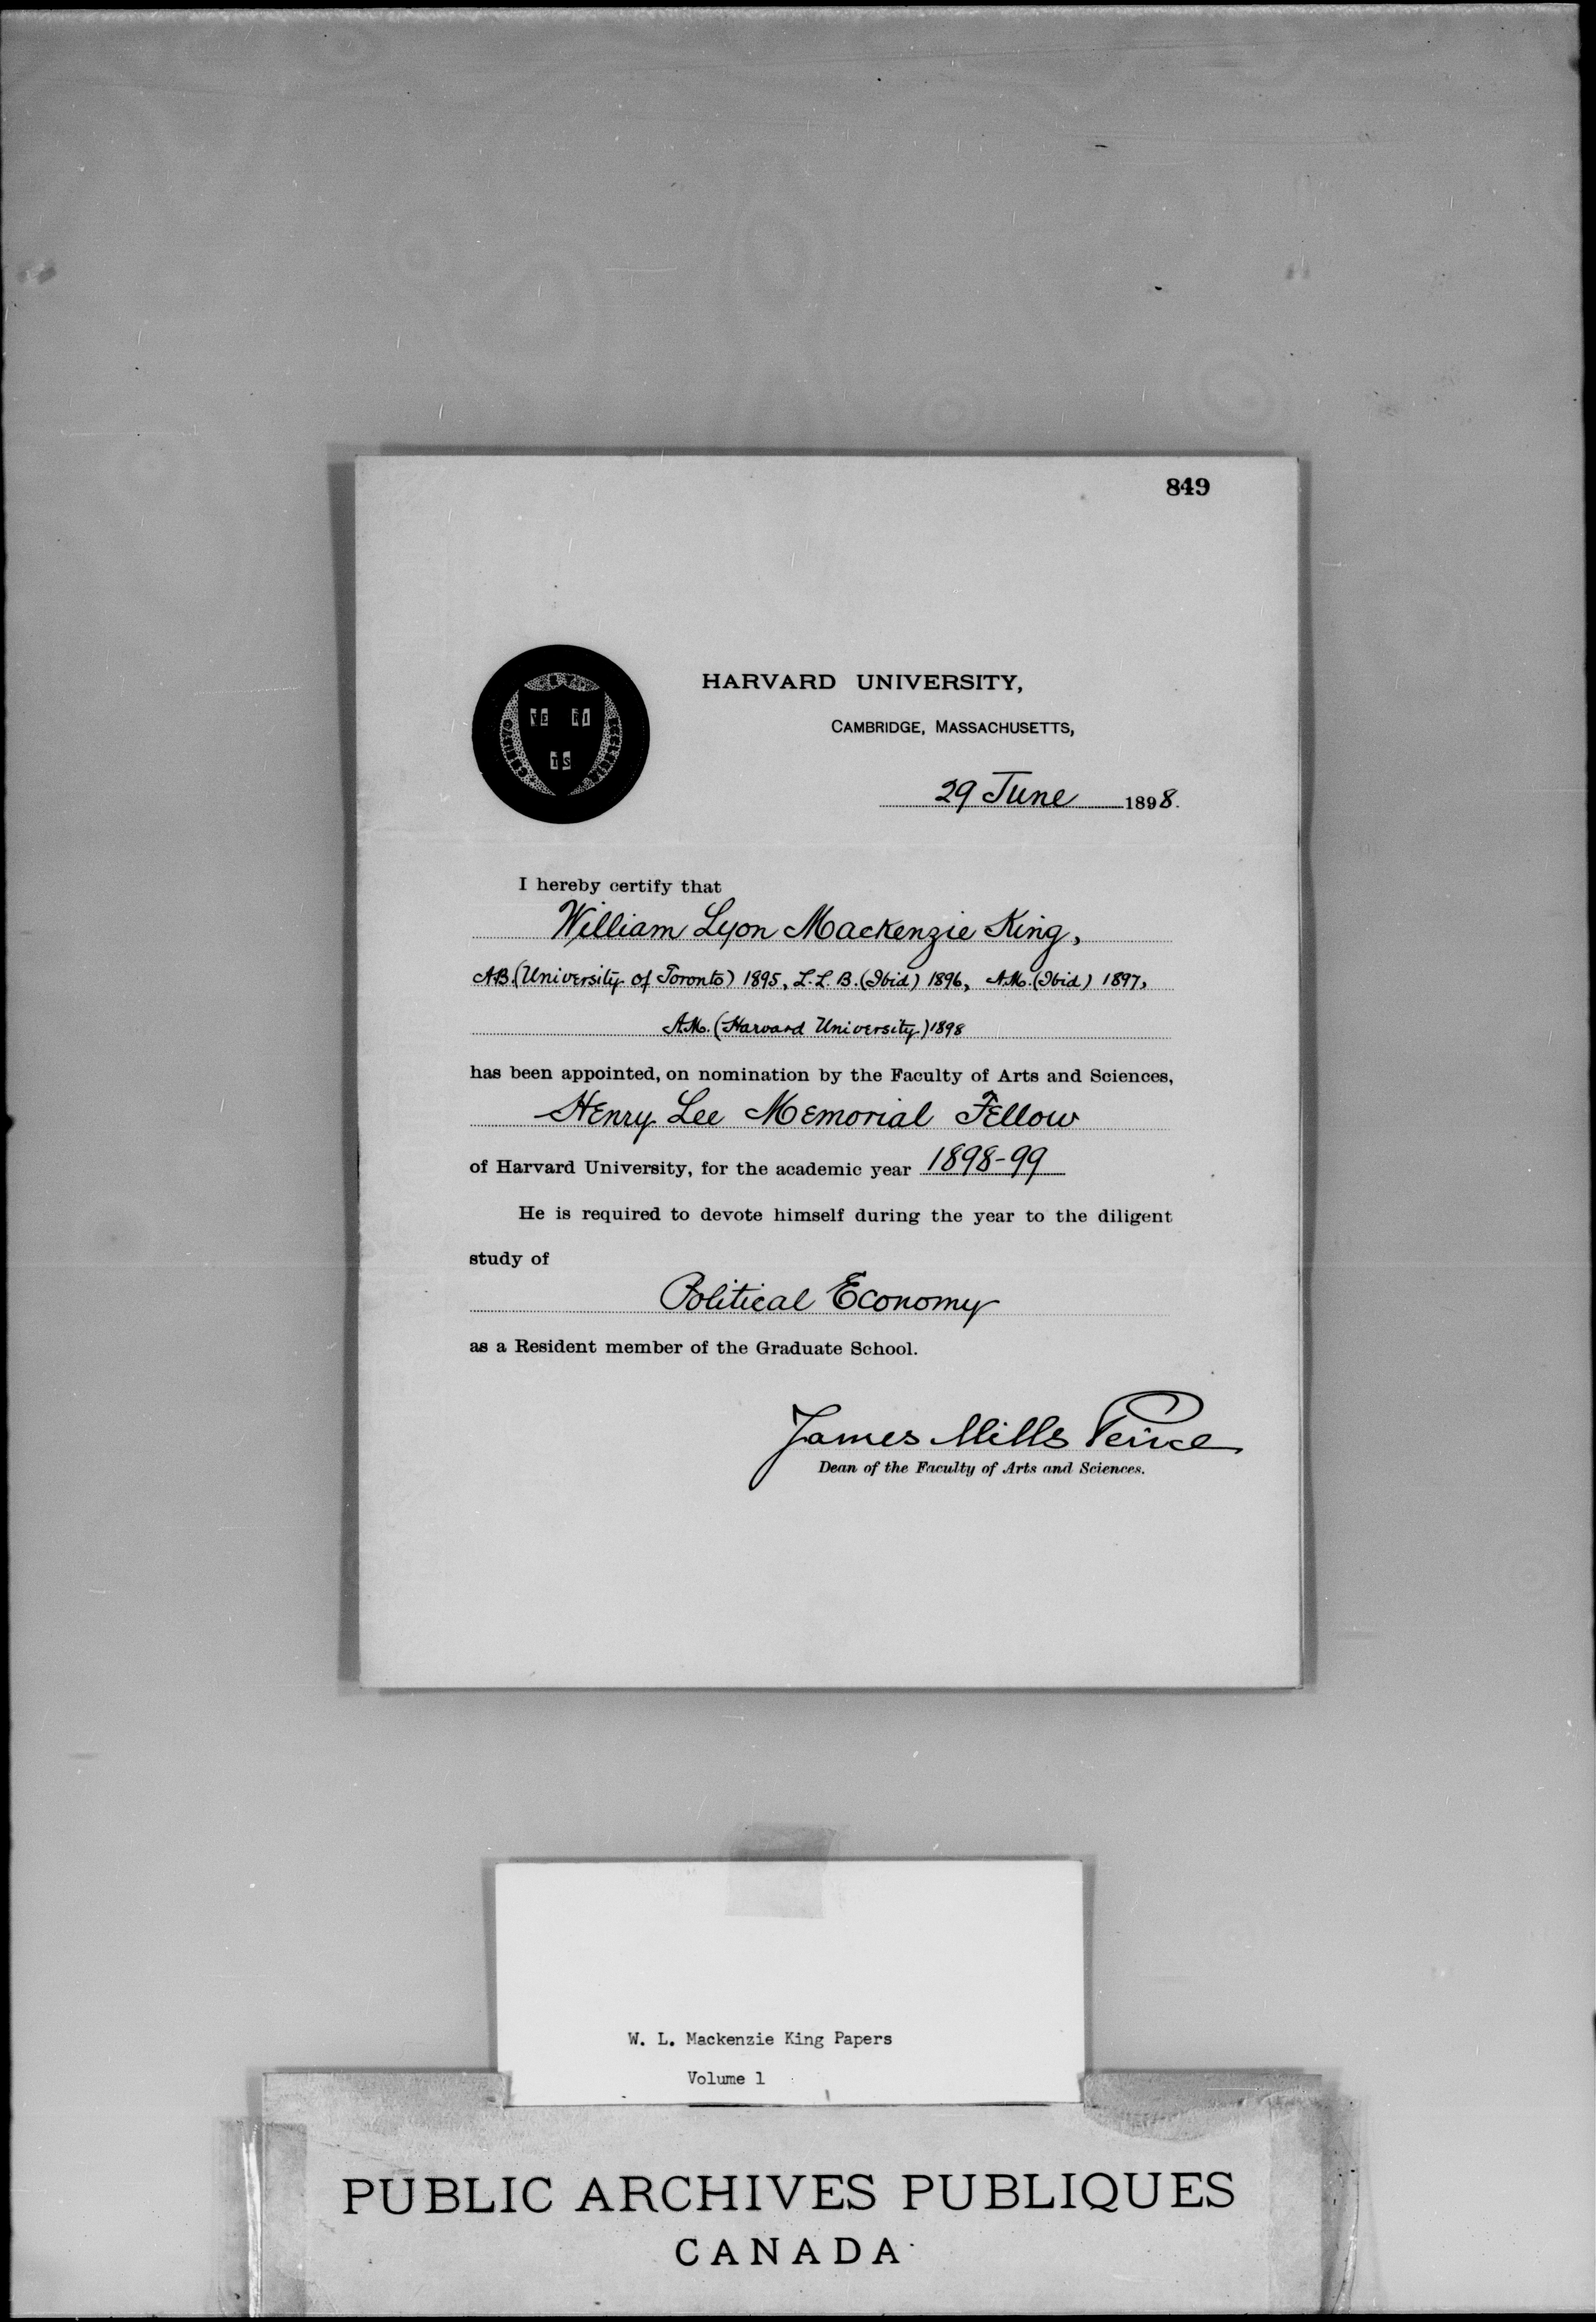 849
VE RI
TS
HARVARD UNIVERSITY,
CAMBRIDGE, MASSACHUSETTS,
29 June 1898.
I hereby certify that
William Lyon Mackenzie King,
A.B. (University of Toronto) 1895, L.L.B. (Ibid) 1896, A.M. (Ibid) 1897,
A.M. (Harvard University) 1898
has been appointed, on nomination by the Faculty of Arts and Sciences,
Henry Lee Memorial Fellow
of Harvard University, for the academic year 1898-99
He is required to devote himself during the year to the diligent
study of
Political Economy
as a Resident member of the Graduate School.
James Mills Peirce
Dean of the Faculty of Arts and Sciences.
W. L. Mackenzie King Papers
Volume 1
PUBLIC ARCHIVES PUBLIQUES
CANADA